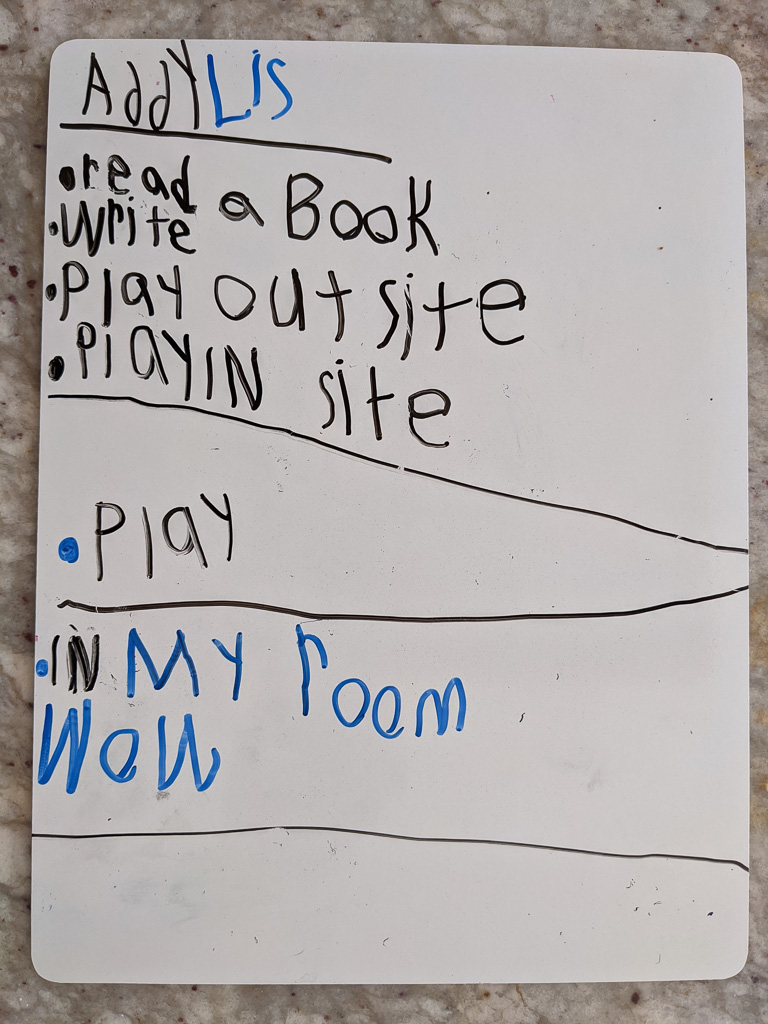 AddYLis
•read
•Write a Book
•Play out site
•PlAYIN site
•Play
•IN My room
Wow